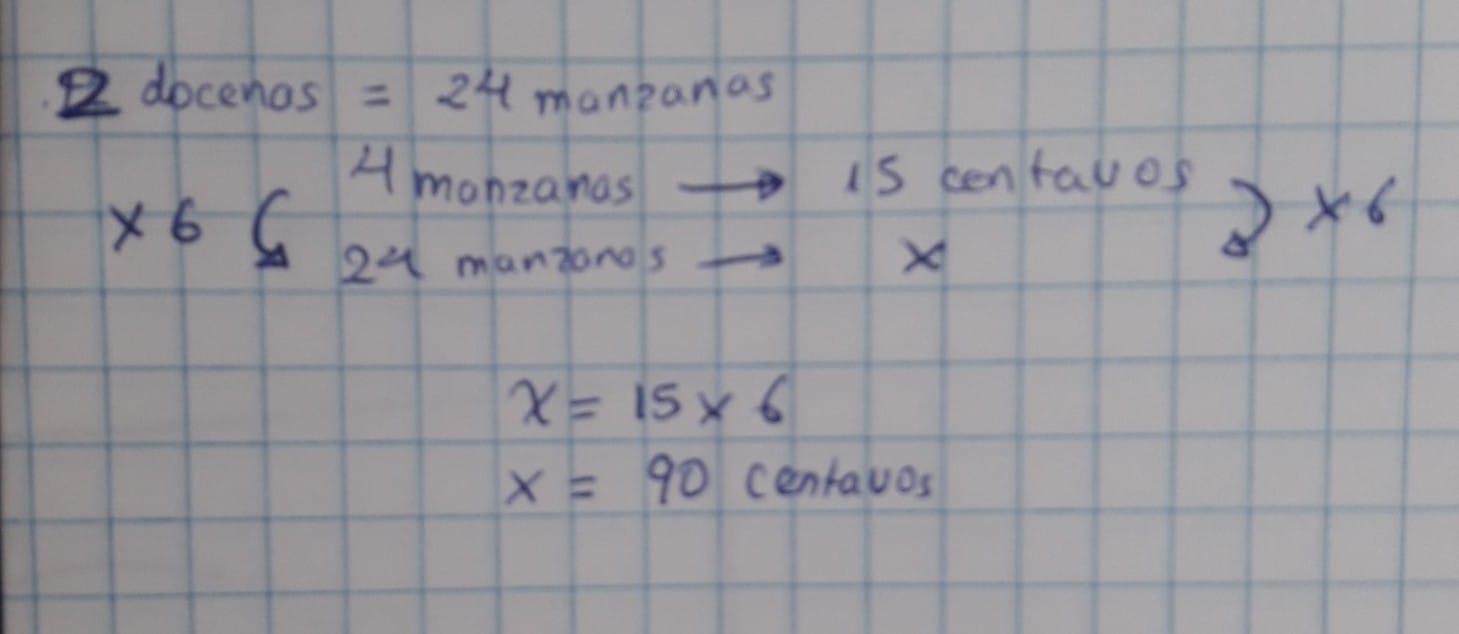 2 docenas = 24 manzanas
4 manzanas → 15 centavos
x 6 x 6
24 manzanas → x
x = 15 x 6
x = 90 centavos